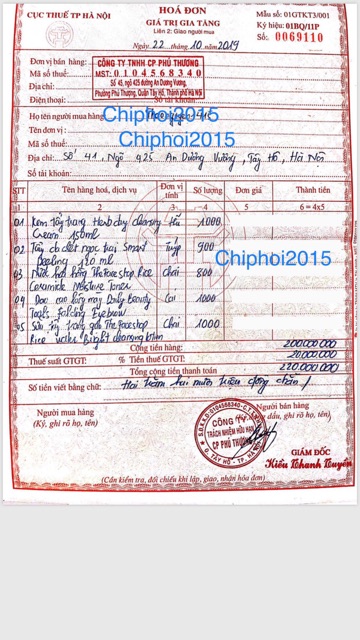 CỤC THUẾ TP HÀ NỘI
HOÁ ĐƠN
GIÁ TRỊ GIA TĂNG
Liên 2: Giao người mua
Mẫu số: 01GTKT3/001
Ký hiệu: 01BQ/11P
Số: 0069110
Ngày 22 tháng 10 năm 2019
Đơn vị bán hàng:
Mã số thuế:
Địa chỉ:
Điện thoại: Số tài khoản
CÔNG TY TNHH CP PHÚ THƯƠNG
MST: 0104568340
Số 45, ngõ 425 đường An Dương Vương,
Phường Phú Thượng, Quận Tây Hồ, Thành phố Hà Nội
Chiphoi2015
Họ tên người mua hàng
Chiphoi2015
Tên đơn vị:
Mã số thuế:
Địa chỉ: Số 41, Ngõ 425 An Dương Vương, Tây Hồ, Hà Nội
Số tài khoản:
STT Tên hàng hoá, dịch vụ Đơn vị tính Số lượng Đơn giá Thành tiền
1 2 3 4 5 6=4x5
01 Kem tẩy trang Herb day cleansing Hũ 1000
Cream 150ml
02 Tẩy da chết ngọc trai Smart Tuýp 900
Peeling 120ml
Chiphoi2015
03 Nước hoa hồng The face shop Rice Chai 800
Ceramide Moisture Toner
04 Dao cạo lông mày Daily Beauty Cái 1000
Tools Folding Eyebrow
05 Sữa tẩy trang gạo The face shop Chai 1000
Rice water Bright cleansing lotion
Cộng tiền hàng: 200.000.000
Thuế suất GTGT: % Tiền thuế GTGT: 20.000.000
Tổng cộng tiền thanh toán 220.000.000
Số tiền viết bằng chữ: Hai trăm hai mươi triệu đồng chẵn /
Người mua hàng
(Ký, ghi rõ họ, tên)
Người bán hàng
dấu, ghi rõ họ, tên)
CÔNG TY
TRÁCH NHIỆM HỮU HẠN
CP PHÚ THƯƠNG
Q. TÂY HỒ - TP. HÀ NỘI
GIÁM ĐỐC
Kiều Khanh Nguyên
(Cần kiểm tra, đối chiếu khi lập, giao, nhận hóa đơn)